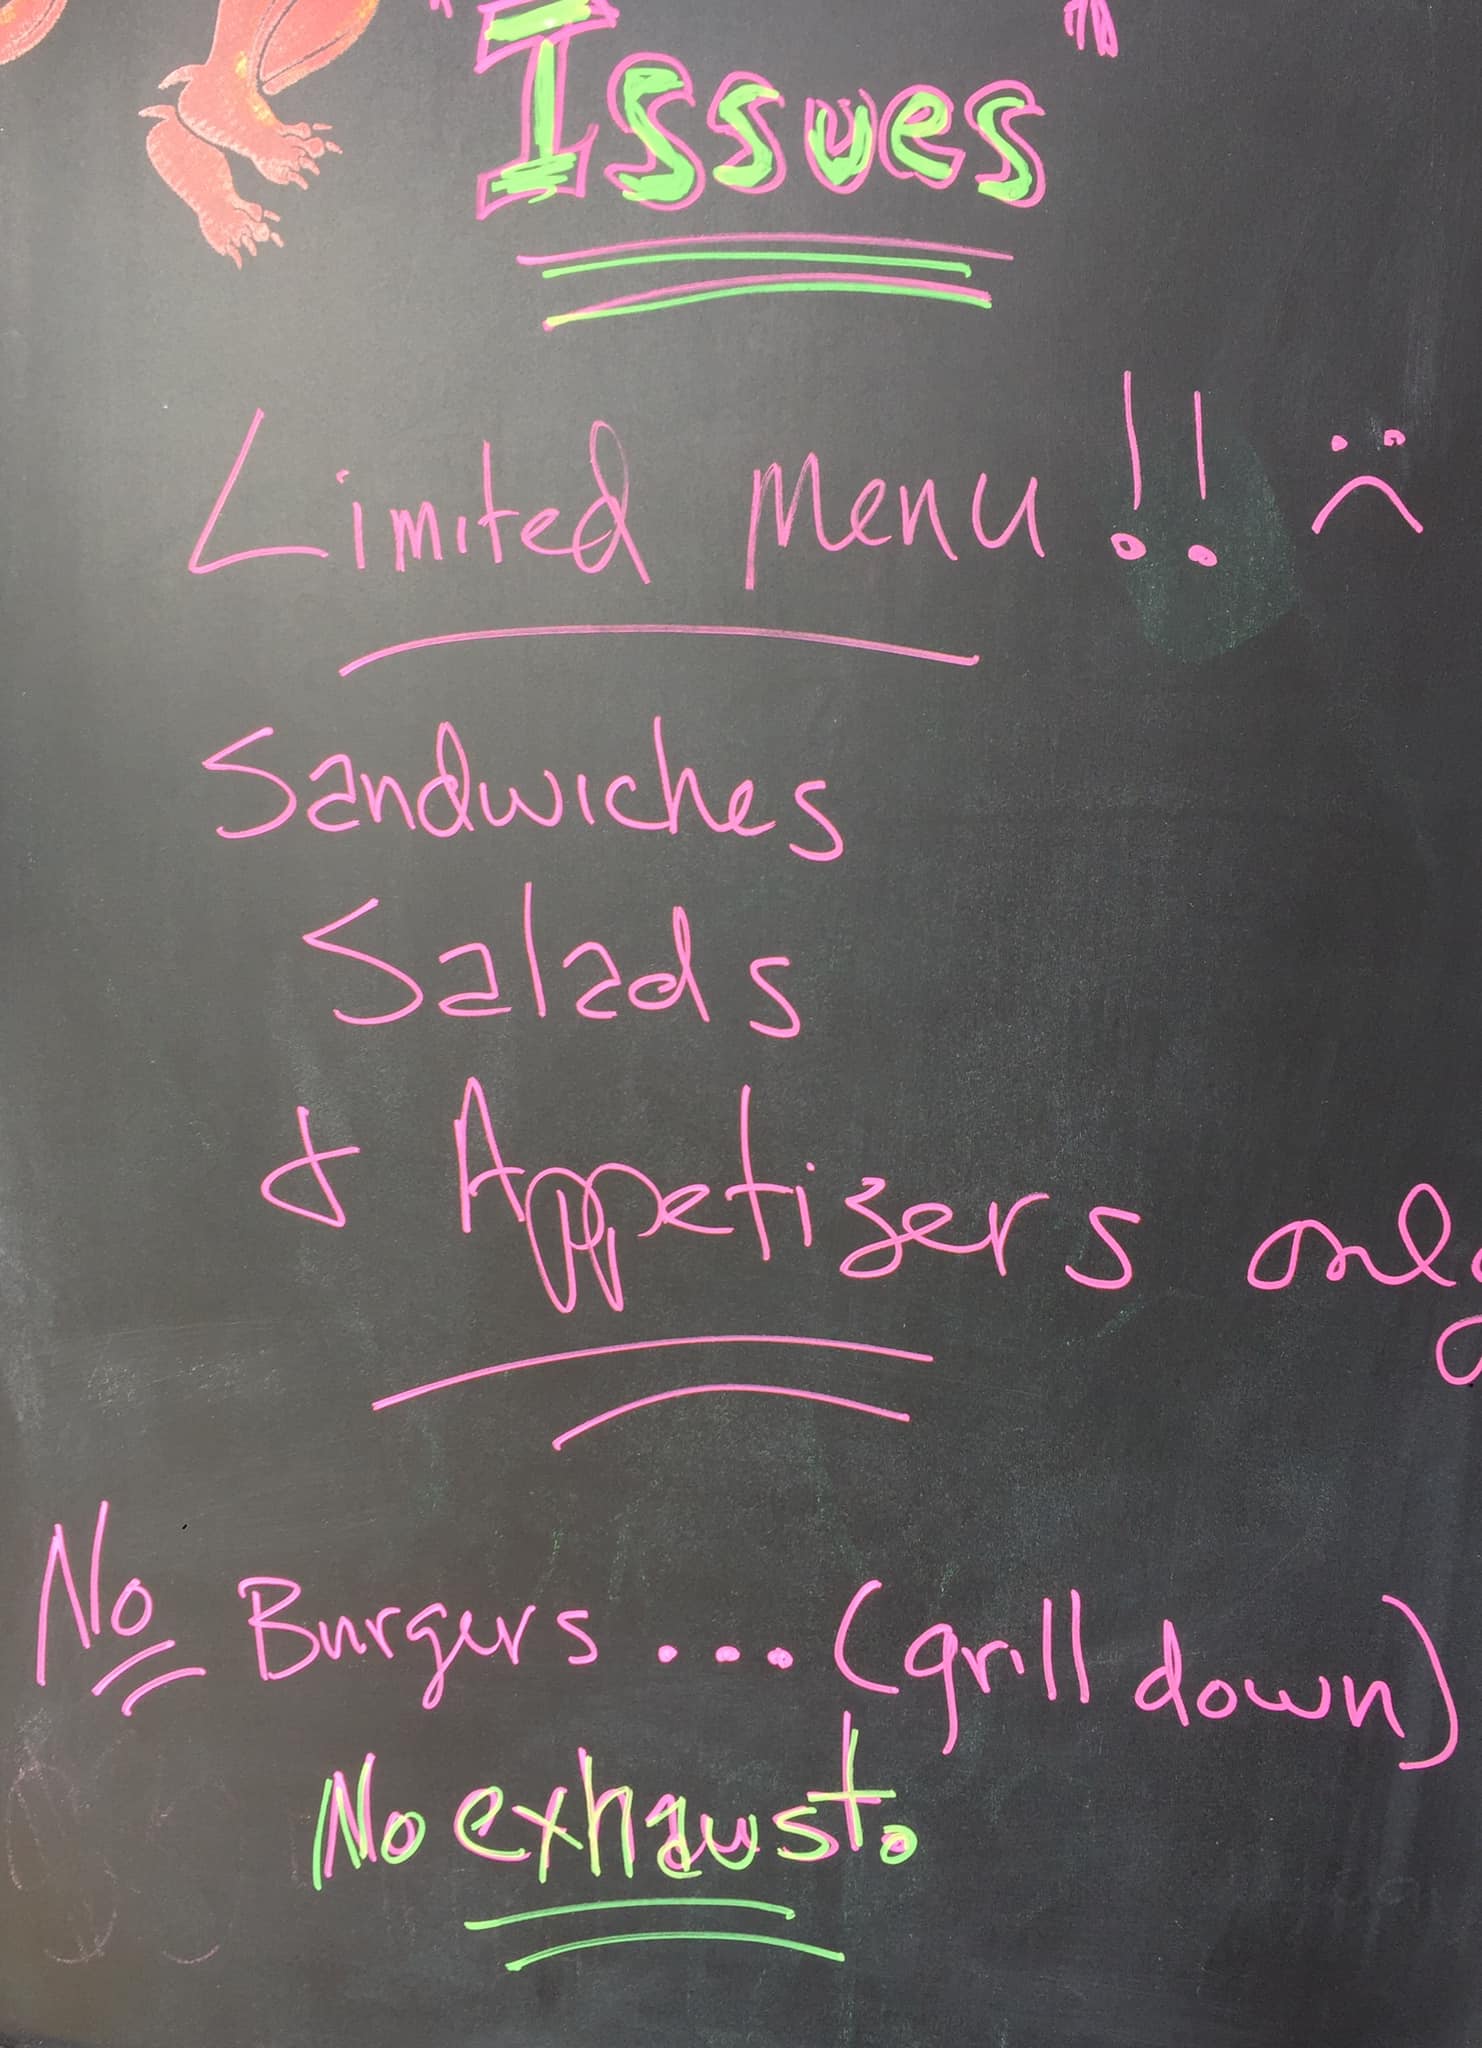 "Issues"
Limited Menu!! :(
Sandwiches
Salads
& Appetizers only
No Burgers... (grill down)
No exhaust.